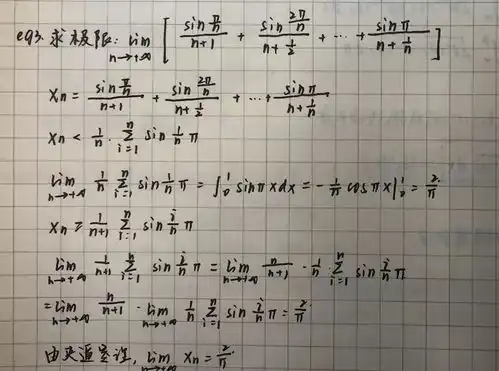 eg3. 求极限: lim n→+∞ [ sin π/n / (n+1) + sin 2π/n / (n+1/2) + ⋯ + sin π / (n+1/n) ]
Xn = sin π/n / (n+1) + sin 2π/n / (n+1/2) + ⋯ + sin π / (n+1/n)
Xn < 1/n · ∑ i=1 n sin i/n π
lim n→+∞ 1/n ∑ i=1 n sin i/n π = ∫ 0 1 sin πx dx = - 1/π cos πx | 0 1 = 2/π
Xn ≥ 1/(n+1) ∑ i=1 n sin i/n π
lim n→+∞ 1/(n+1) ∑ i=1 n sin i/n π = lim n→+∞ n/(n+1) · 1/n · ∑ i=1 n sin i/n π
= lim n→+∞ n/(n+1) · lim n→+∞ 1/n ∑ i=1 n sin i/n π = 2/π
由夹逼定理, lim n→+∞ Xn = 2/π